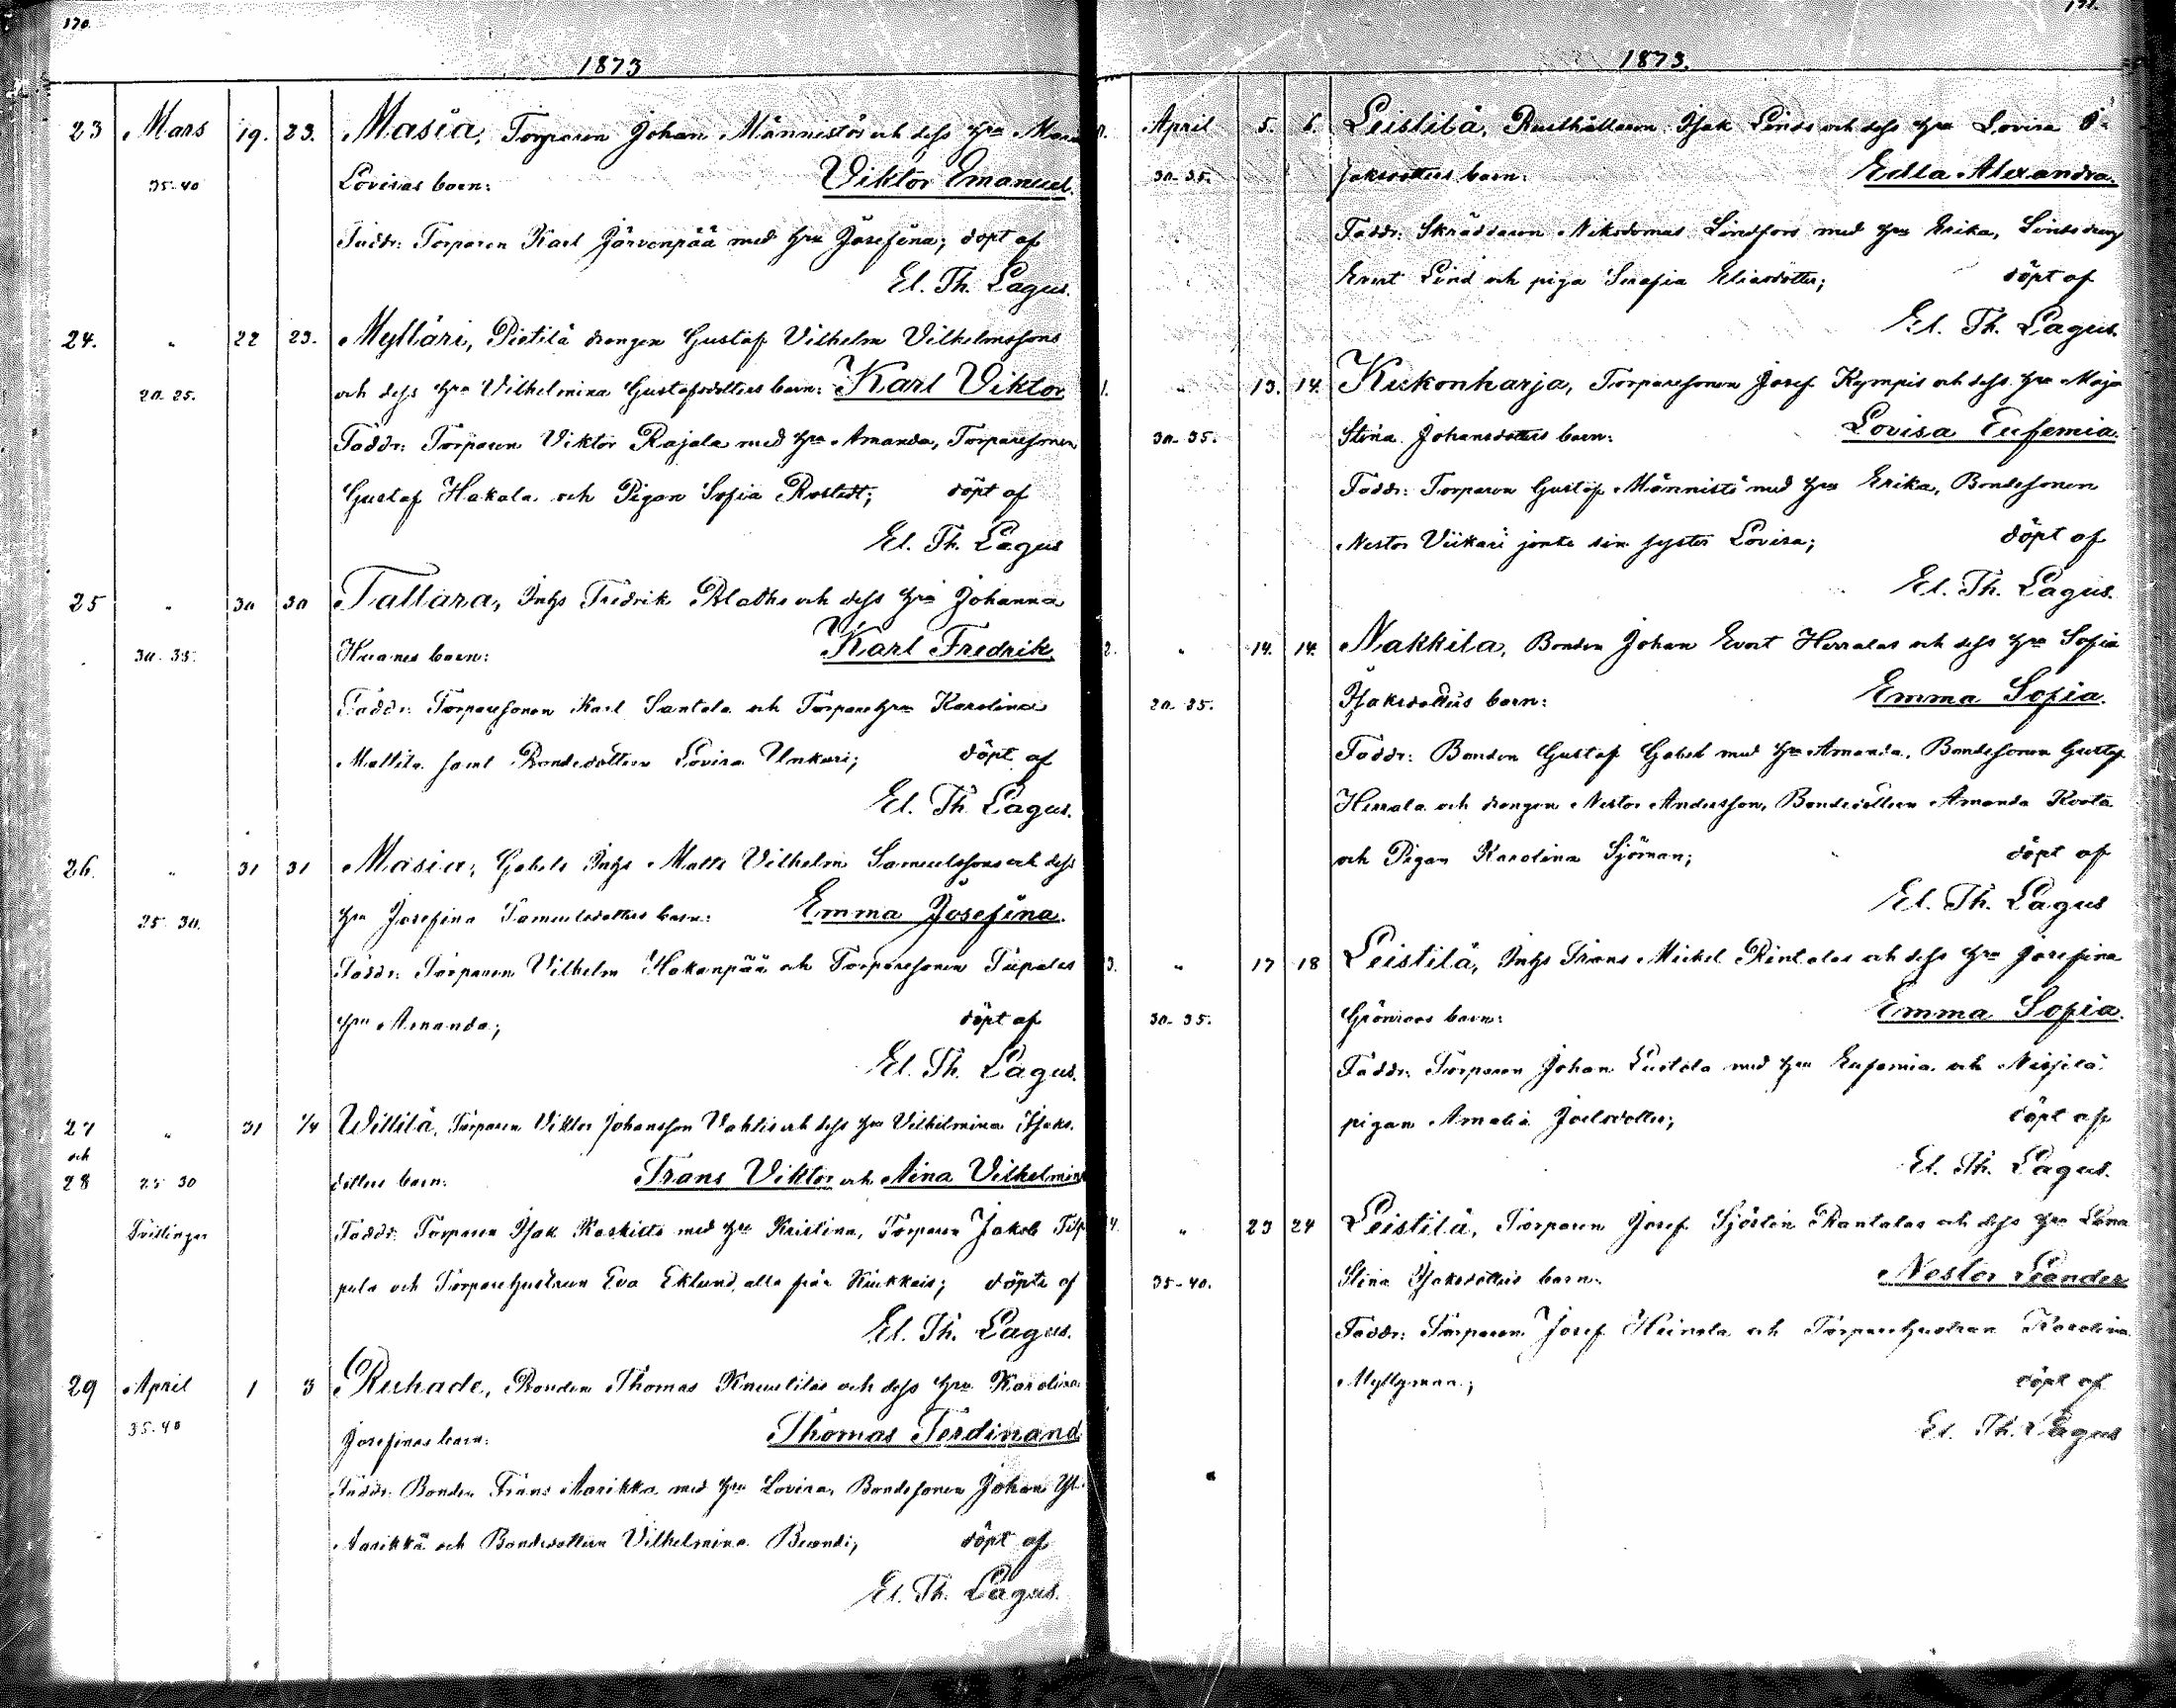 170.
1873
23 Mars 19. 23. Masia, Torparen Johan Männistös och dess hru Maria
35-40 Lovisas barn: Viktor Emanuel.
Faddr: Torparen Karl Järvenpää med hru Josefina; döpt af
El. Th. Lagus.
24. " 22 23. Mylläri, Pietilä drengen Gustaf Vilhelm Vilhelmssons
20-25. och dess hru Vilhelmina Gustafsdotters barn: Karl Viktor
Faddr: Torparen Viktor Rajala med hru Amanda, Torparesonen
Gustaf Hakala och Pigan Sofia Rostedt; döpt af
El. Th. Lagus
25 " 30 30 Tattara, Inhs Fredrik och dess hru Johanna
30-35. barn: Karl Fredrik
Faddr: Torparesonen Karl Santala och Torparehru Karolina
Mattila samt Bondedottren Lovisa Unkari; döpt af
El. Th. Lagus.
26. " 31 31 Masia, Gabels Inhs Matts Vilhelm Samuelssons och dess
25-30. hru Josefina Samuelsdotters barn: Emma Josefina.
Faddr: Torparen Vilhelm Hakanpää och Torparesonen
hru Amanda; döpt af
El. Th. Lagus.
27 " 31 1/4 Willilä, Torparen Viktor Johansson och dess hru Vilhelmina Isaks
och
28 25-30 dotters barn: Frans Viktor och Aina Vilhelmina
Tvillingar Faddr: Torparen Isak Koskitto med hru Kristina, Torparen Jakob
pula och Torparehustrun Eva Eklund, alla från Kiukkais; döpte af
El. Th. Lagus.
29 April 1 3 Ruhade, Bonden Thomas Knuutilas och dess hru Karolina
35-40 Josefinas barn: Thomas Ferdinand
Faddr: Bonden Frans Aarikka med hru Lovisa, Bondesonen Johan Yl.
Aarikka och Bondedottren Vilhelmina; döpt af
El. Th. Lagus.
171.
1873.
April 5. 6. Leistilä, Rusthållaren Isak Linds och dess hru Lovisa I-
30-35. saksdotters barn: Edla Alexandra.
Faddr: Skräddaren Nikodemus Lindfors med hru Erika, Lindsdreng
Evert Lind och piga Serafia Eliasdotter; döpt af
El. Th. Lagus.
1. " 13. 14. Kukonharja, Torparesonen Josef Kympis och dess hru Maja
30-35. Stina Johansdotters barn: Lovisa Eufemia.
Faddr: Torparen Gustaf Männistö med hru Erika, Bondesonen
Nestor Viikari jemte sin syster Lovisa; döpt af
El. Th. Lagus.
2. " 14. 14. Nakkila, Bonden Johan Evert Herralas och dess hru Sofia
20-25. Isaksdotters barn: Emma Sofia.
Faddr: Bonden Gustaf Gabel med hru Amanda, Bondesonen Gustaf
Herrala och drengen Nestor Andersson, Bondedottren Amanda Krota
och Pigan Karolina Sjöman; döpt af
El. Th. Lagus
3. " 17 18 Leistilä, Inhs Frans Mickel Rintalas och dess hru Josefina
30-35. Grönroos barn: Emma Sofia.
Faddr: Torparen Johan Luotola med hru Eufemia och
pigan Amalia Joelsdotter; döpt af
El. Th. Lagus.
4. " 23 24 Leistilä, Torparen Josef Sjöstén Rantalas och dess hru Lena
35-40. Stina Isaksdotters barn: Nestor Leander
Faddr: Torparen Josef Heinola och Torparehustrun Karolina
Myllymaa; döpt af
El. Th. Lagus